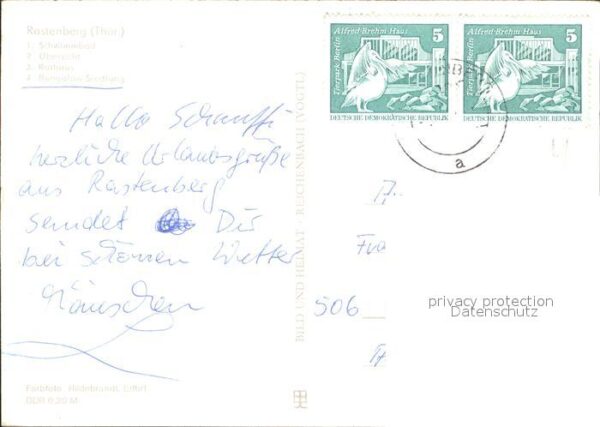 Rastenberg (Thür.)
1. Schwimmbad
2. Übersicht
3. Rathaus
4. Bungalow-Siedlung
Hallo Schnuffi
herzliche Urlaubsgrüße
aus Rastenberg
sendet Dir
bei schönem Wetter
Mäuschen
Farbfoto: Hildebrandt, Erfurt
DDR 0,20 M
BILD UND HEIMAT · REICHENBACH (VOGTL)
Alfred-Brehm-Haus 5
Tierpark Berlin
DEUTSCHE DEMOKRATISCHE REPUBLIK
Alfred-Brehm-Haus 5
Tierpark Berlin
DEUTSCHE DEMOKRATISCHE REPUBLIK
a
Fra
506
privacy protection
Datenschutz